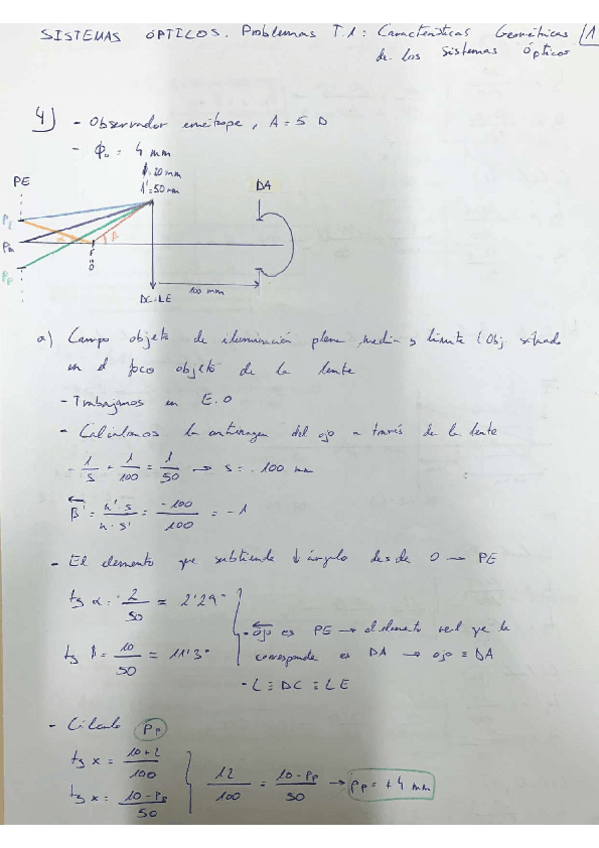 SISTEMAS ÓPTICOS. Problemas T.1: Características Geométricas 1
de los sistemas ópticos
4) - Observador emétrope, A = 5 D
- ϕo = 4 mm
PE
ϕ=20 mm
f'=50mm
DA
PL
Pm
Pp
α
β
F
O
100 mm
DC=LE
a) Campo objeto de iluminación plena, media y límite (Obj situado
en el foco objeto de la lente
- Trabajamos en E.O
- Calculamos la antiimagen del ojo a través de la lente
- 1/s + 1/100 = 1/50 → s = -100 mm
β' = n'·s / n·s' = -100/100 = -1
- El elemento que subtiende ↓ ángulo desde O → PE
tg α = 2/50 = 2'29°
tg β = 10/50 = 11'3°
- ojo es PE → el elemento real que le
corresponde es DA → ojo ≡ DA
- L ≡ DC ≡ LE
- Cálculo Pp
tg x = 10+2/100
tg x = 10-Pp/50
12/100 = 10-Pp/50 → Pp = +4 mm